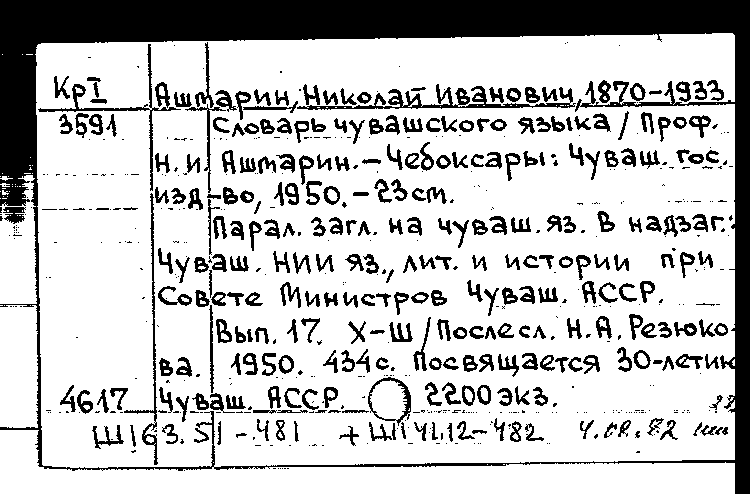 КрI Ашмарин, Николай Иванович, 1870-1933.
3591 Словарь чувашского языка / Проф.
Н.И. Ашмарин. - Чебоксары: Чуваш. гос.
изд-во, 1950. - 23 см.
Парал. загл. на чуваш. яз. В надзаг.:
Чуваш. НИИ яз., лит. и истории при
Совете Министров Чуваш. АССР.
Вып. 17. Х-Ш / Послесл. Н.А. Резюко-
ва. 1950. 434с. Посвящается 30-летию
4617 Чуваш. АССР. 2200 экз.
Ш163.51-481 + Ш141.12-482